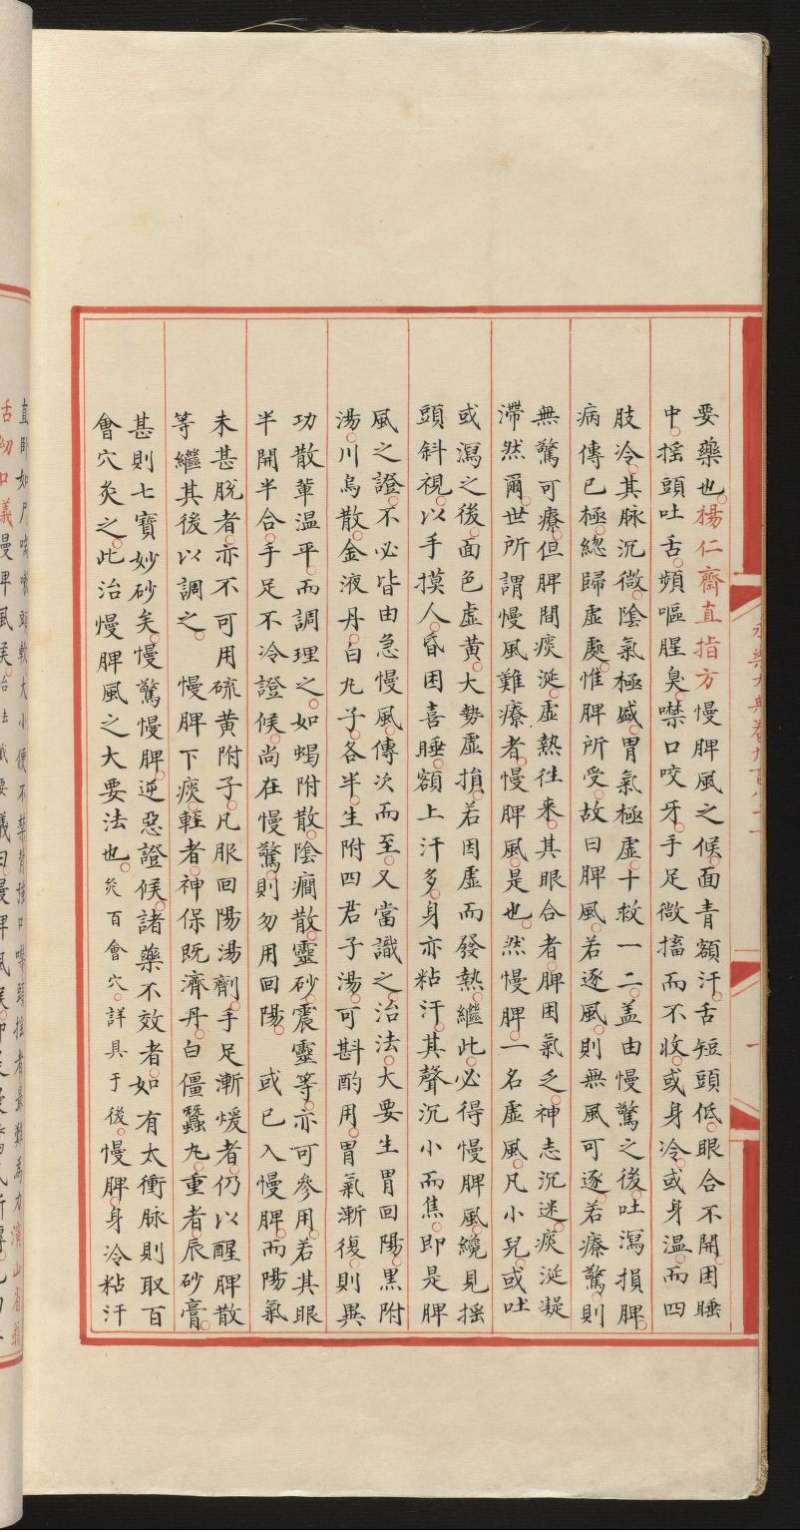 要藥也楊仁齋直指方慢脾風之候面青額汗舌短頭低眼合不開困睡
中搖頭吐舌頻嘔腥臭噤口咬牙手足微搐而不收或身冷或身溫而四
肢冷其脉沉微陰氣極盛胃氣極虛十救一二盖由慢驚之後吐瀉損脾
病傳已極總歸虛處惟脾所受故曰脾風若逐風則無風可逐若療驚則
無驚可療但脾間痰涎虛熱往來其眼合者脾困氣乏神志沉迷痰涎凝
滯然爾世所謂慢風難療者慢脾風是也然慢脾一名虛風凡小兒或吐
或瀉之後面色虛黃大勢虛損若因虛而發熱繼此必得慢脾風纔見搖
頭斜視以手摸人昏困喜睡額上汗多身亦粘汗其聲沉小而焦即是脾
風之證不必皆由急慢風傳次而至又當識之治法大要生胃回陽黑附
湯川烏散金液丹白丸子各半生附四君子湯可斟酌用胃氣漸復則異
功散軰溫平而調理之如蝎附散陰癎散靈砂震靈等亦可參用若其眼
半開半合手足不冷證候尚在慢驚則勿用回陽或已入慢脾而陽氣
未甚脫者亦不可用硫黃附子凡服回陽湯劑手足漸煖者仍以醒脾散
等繼其後以調之慢脾下痰輕者神保既濟丹白僵蠶丸重者辰砂膏
甚則七寶妙砂矣慢驚慢脾逆惡證候諸藥不效者如有太衝脉則取百
會穴灸之此治慢脾風之大要法也灸百會穴詳具于後慢脾身冷粘汗